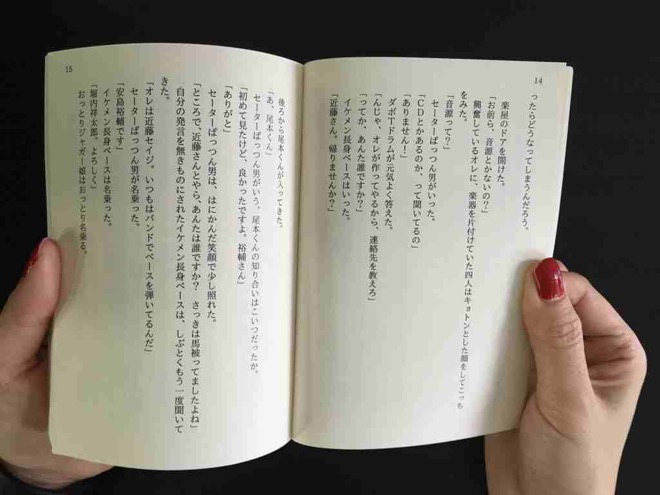 14
ったらどうなってしまうんだろう。
楽屋のドアを開けた。
「お前ら、音源とかないの？」
興奮しているオレに、楽器を片付けていた四人はキョトンとした顔をしてこっち
をみた。
「音源って？」
セーターぱっつん男がいった。
「ＣＤとかあるのか、って聞いてるの」
「ありません！」
ダボＴドラムが元気よく答えた。
「んじゃ、オレが作ってやるから、連絡先を教えろ」
「ってか、あんた誰ですか？」
イケメン長身ベースはいった。
「近藤さん。帰りませんか？」
15
後ろから尾本くんが入ってきた。
「あ、尾本くん」
セーターぱっつん男がいう。尾本くんの知り合いはこいつだったか。
「初めて見たけど、良かったですよ。裕輔さん」
「ありがと」
セーターぱっつん男は、はにかんだ笑顔で少し照れた。
「ところで、近藤さんとやら、あんたは誰ですか？　さっきは馬被ってましたよね」
自分の発言を無きものにされたイケメン長身ベースは、しぶとくもう一度聞いて
きた。
「オレは近藤セイジ。いつもはバンドでベースを弾いてるんだ」
セーターぱっつん男が名乗った。
「安島裕輔です」
イケメン長身ベースは名乗った。
「堀内祥太郎。よろしく」
おっとりジャガー娘はおっとり名乗る。